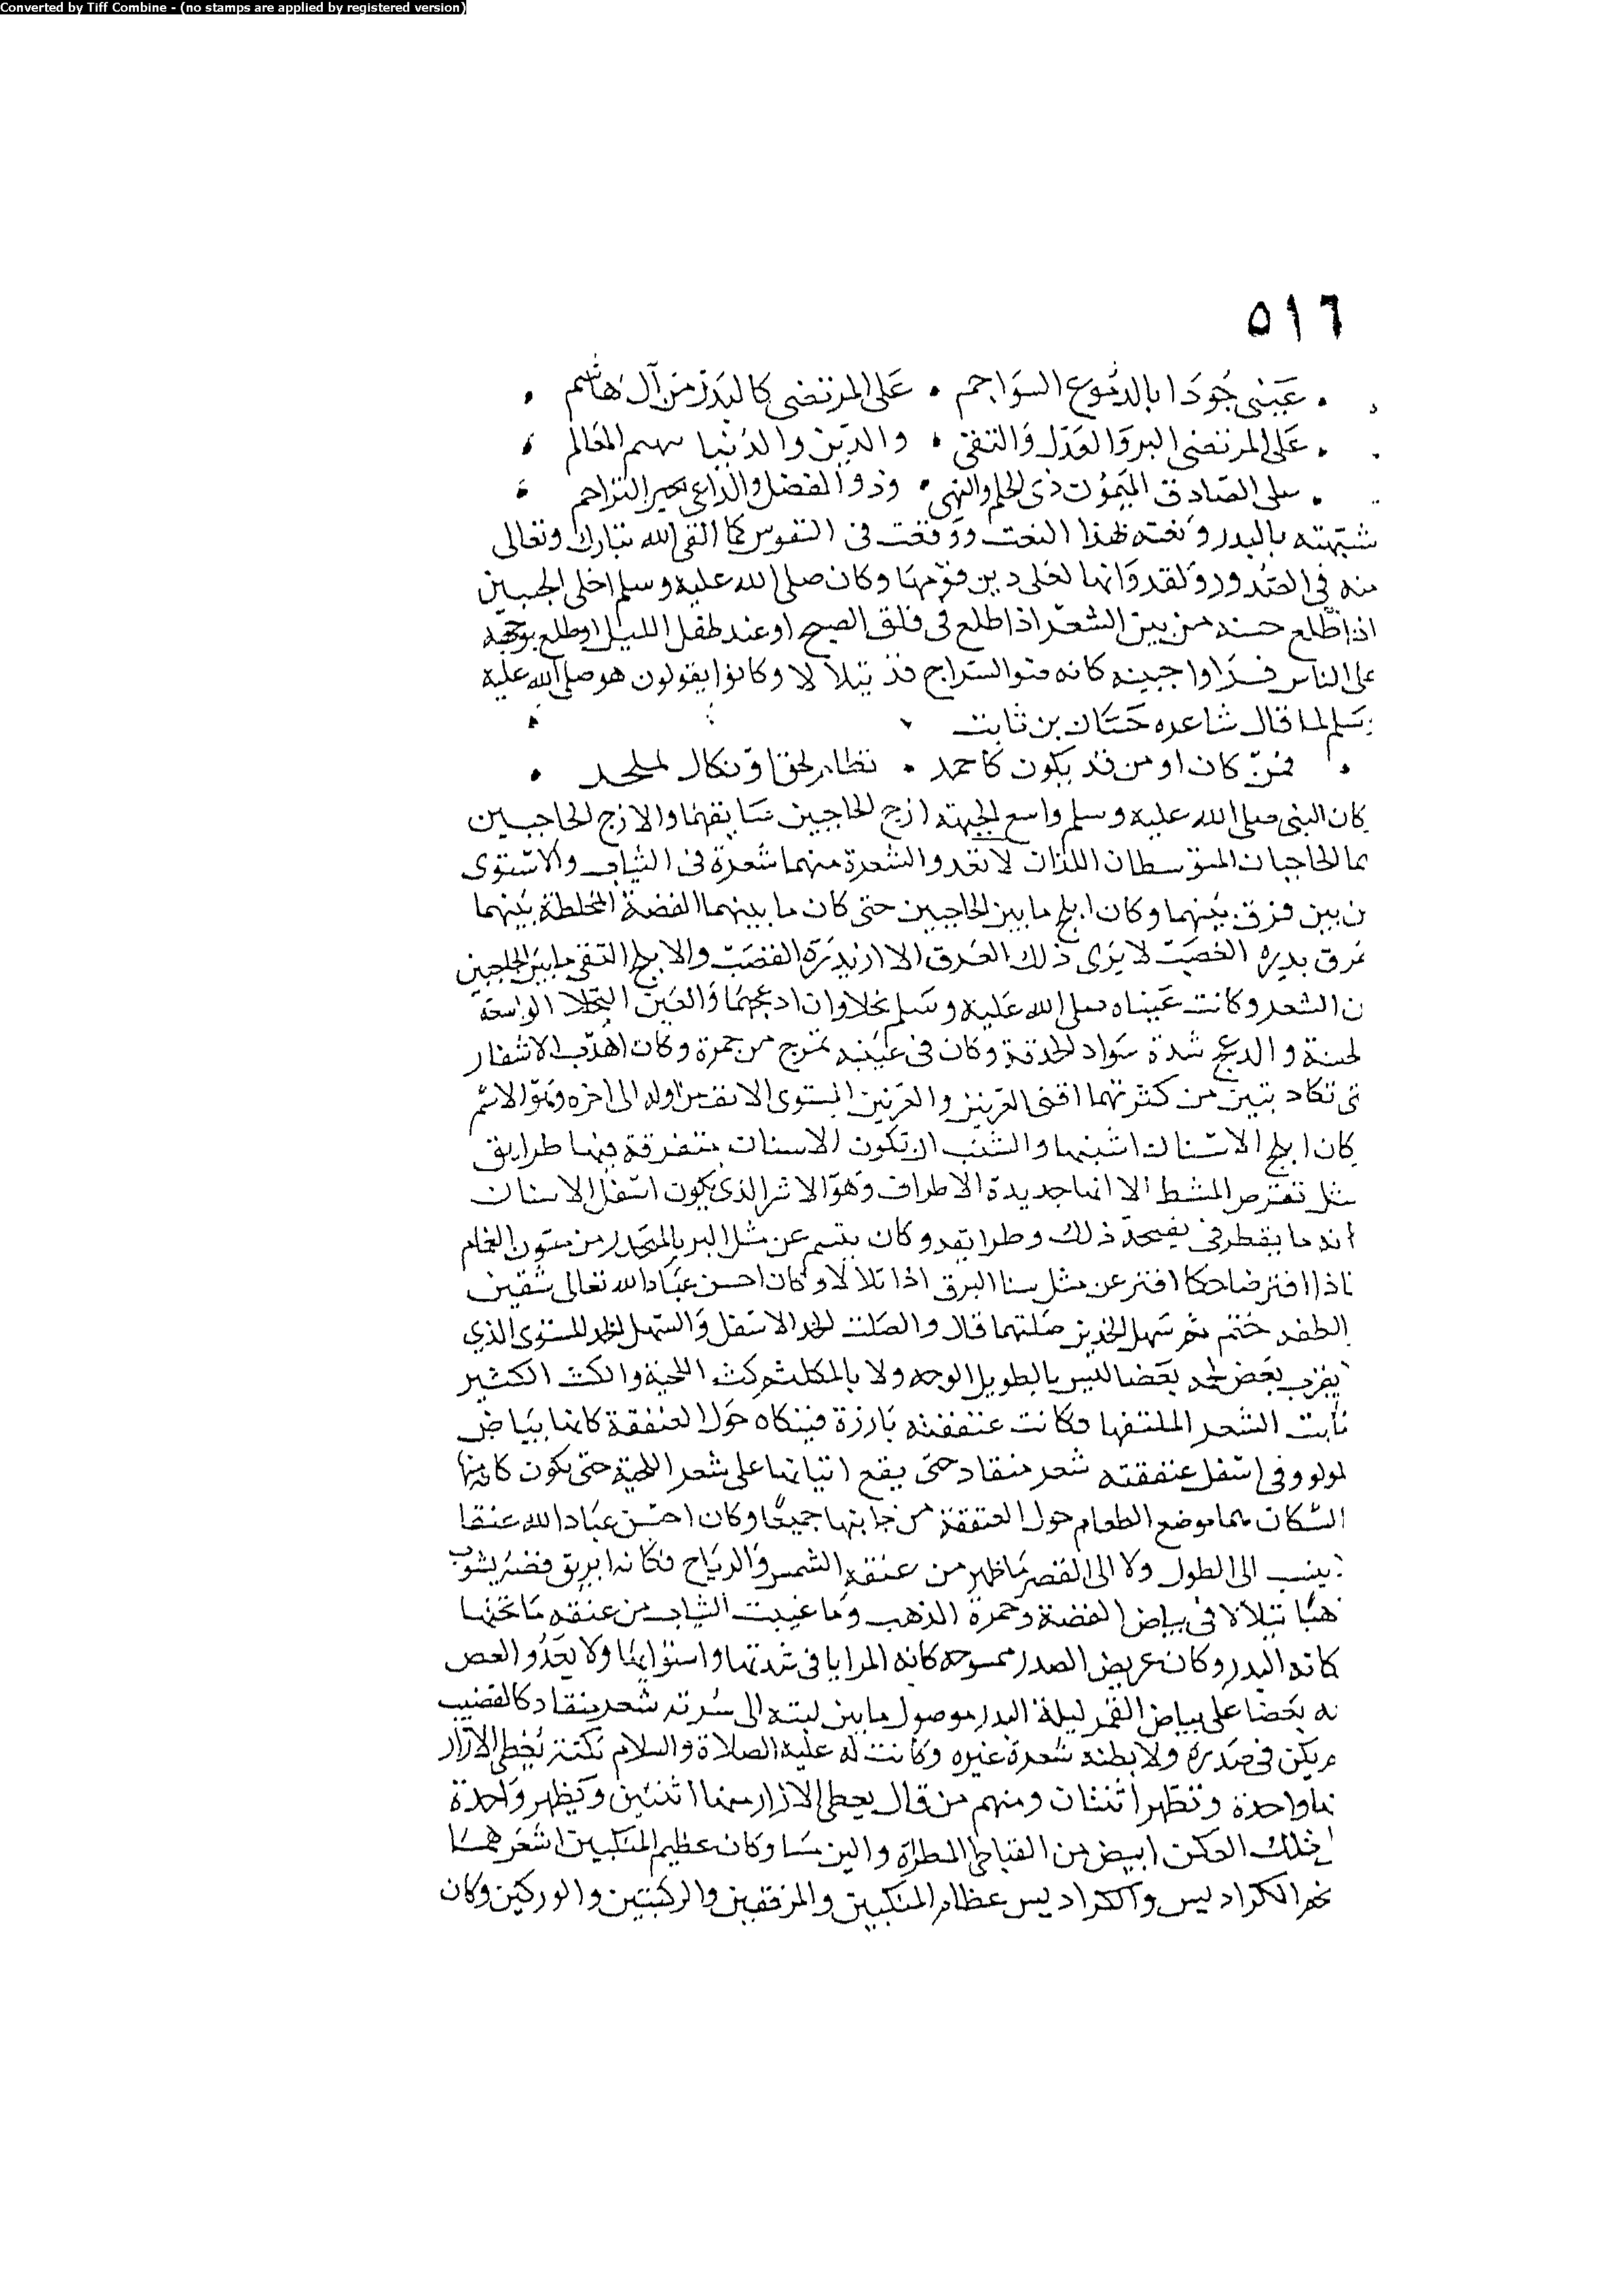 Converted by Tiff Combine - (no stamps are applied by registered version)
٥١٦
عَيَنى جُودَا بالدمُوع السوَاجم • عَلى المرتضى كالبَدرْ منَ آل هَاشم •
عَلى المرتضى البر وَالعَدل وَالتقى • والدّين والدُنيا بهم المعَالم •
على الصّادق الميَموُن ذى الحلم والنهى • وذو الفضل والدّاعى بخير التراحم
شبّهته بالبدر ونعَته بهذا النعت ووَقعَت فى النفوس كما القى الله تبارك وتعالى
منه فى الصُدور وَلقد وَانها لعَلى دين قوْمهَا وكان صلى الله عليه وسلم اجلى الجبين
اذا طلع حسنه من بين الشعَر اذا طلع فى فلق الصبح او عند طفل الليل او طلع بوجهه
على الناس فرَاوا جبينه كانه ضوالسَراج قد يتلألا وكانوا يقولون هو صلى الله عليه
وسَلم كما قال شاعره حَسَان بن ثابت
فمنْ كان او من قد يكون كاحمد • نظام لحق اوْ نكال لملحد •
كان النبى صلى الله عليه وسلم واسع الجبهته ازج الحاجبين سَابقهمَا والازج الحاجبين
هما الحاجبان المتوَسطان اللذان لا تعَدو الشعرة منهما شعرة فى الثبات والاسْتوى
من بين فرْق بيَنهما وكان ابلج ما بين الحاجبين حتى كان ما بينهما الفضة المخلطة بيْنهما
عرق يدره الغضبَ لا يَرى ذلك العَرق الا ان يدرَه الغضبَ والابلج النقى ما بين الحاجبين
من الشعر وكانت عَيناه صلى الله عَليه وسَلم نجلاوان ادعجهمَا وَالعَين النجلا الواسعَة
الحسنة والدعج شدة سَواد الحدقة وكان فى عَينيه تمزج من حمرة وكان اهدَب الاشفار
حتى تكاد تبين من كثرتهما اقنى العرنين والعرَنين المستوى الانف من اوله الى اخره وَهوَ الاشم
كان ابلج الاسْنان اشنبها والشنب ان تكون الاسنان متفرقة فيها طرايق
مثل تعَرض المشط الا انها حديدة الاطراف وَهوَ الاشر الذى يكون اسفل الاسنان
كانه ما يقطر فى تفيحه ذلك وطرايقه وكان يتبسم عن مثل البرد المنحَدر من متون الغمام
فاذا افتر ضاحكا افتر عن مثل سنا البرق اذا تلالا وكان احسن عبَاد الله تعالى شفتين
والطفه ختم فم سَهل الخدين صَلتهما قال والصَلت الخد الاسَفل وَالسَهل الخد المستوى الذي
لا يفرب بَعَض لحمه بعَضا ليس بالطويل الوجه ولا بالمكلثم كث اللحية والكث الكثير
نابت الشعر الملتفها وكانت عنفقته بَارزة فينكاه حَول العنفقة كانها بيَاض
لولو وفى اسْفل عنفقته شعر منقاد حتى يقع انتيانها على شعر اللحية حتى يكون كانه منها
السّكان هما موضع الطعام حول العنفقة من جانبها جميعًا وكان احسَن عبَاد الله عنقا
لا ينسب الى الطول ولا الى القصر مَا ظهر من عنقه الشمس وَالريَاح فكانه ابريق فضة يشوب
ذهبًا يتلالا فى بياض الفضة وَحمرة الذهب وَمَا غيبت الثياب من عنقه مَا تحتها
كانه البدر وكان عريض الصدر ممسوحه كانه المرايا فى شدتها واستوايهَا ولا يعَدُو بعض
لحمه بَعضا على بياض القمر ليلة البدر موصول ما بين لبته الى سُرته شعر منقاد كالقضيب
لم يكن فى صَدره ولا بطنه شعرة غيره وكانت له عليه الصلاة والسلام عكنة يُغطى الازار
منها واحدة وتظهر اثنتان ومنهم من قال يغطى الازار منها اثنتين وَيظهر وَاحدة
تلك العكن ابيض من القباطى المطراة والين مسَا وكان عظيم المنكبين اشعَرهمسَا
ضخم الكرَاديس والكرَاديس عظام المنكبين والمرفقين والركبتين والوركين وكان